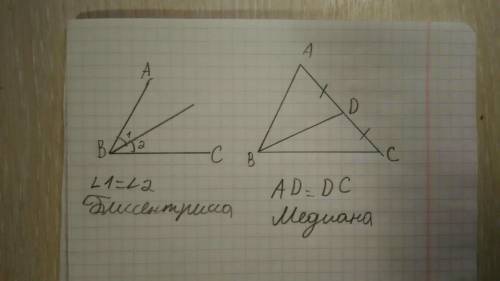 A
1
2
B
C
∠1=∠2
Биссентриса
A
D
B
C
AD=DC
Медиана